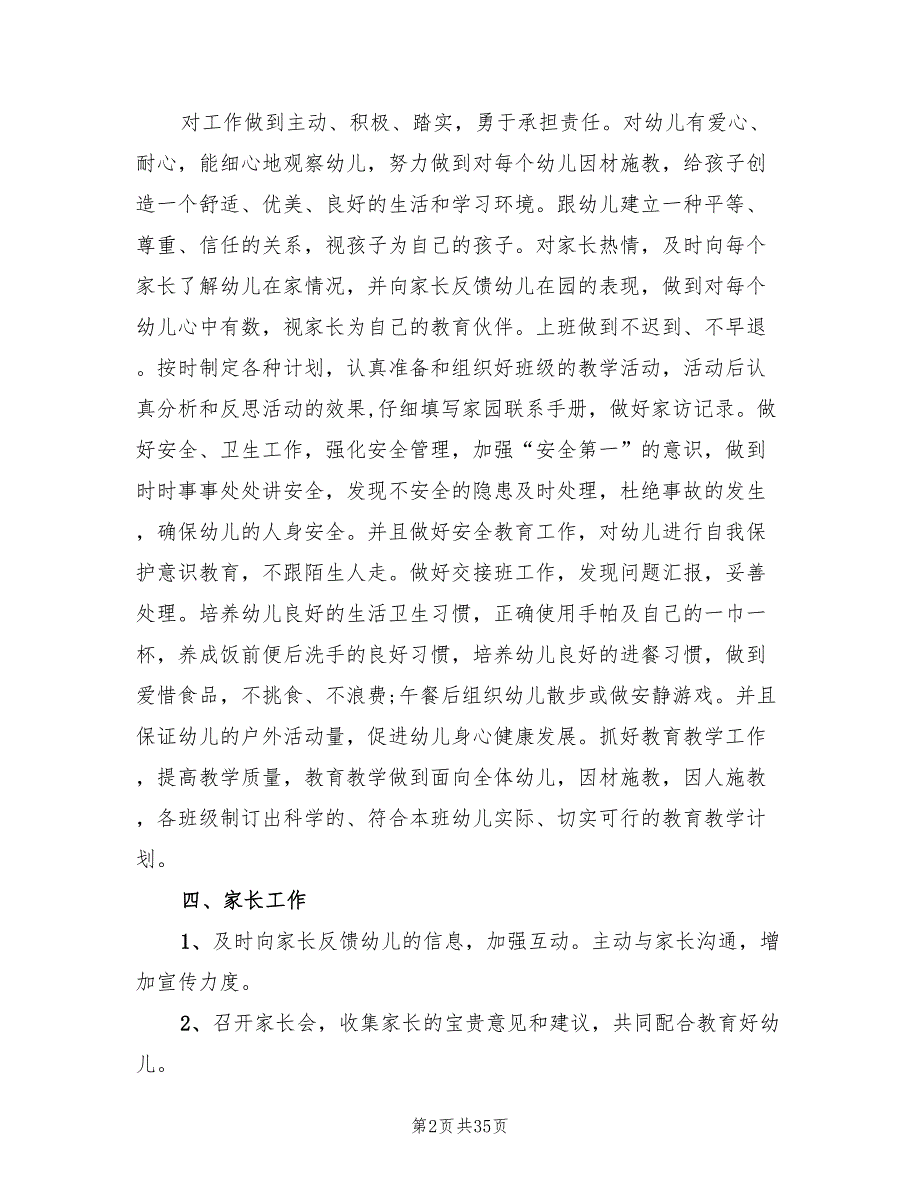 对工作做到主动、积极、踏实，勇于承担责任。对幼儿有爱心、
耐心，能细心地观察幼儿，努力做到对每个幼儿因材施教，给孩子创
造一个舒适、优美、良好的生活和学习环境。跟幼儿建立一种平等、
尊重、信任的关系，视孩子为自己的孩子。对家长热情，及时向每个
家长了解幼儿在家情况，并向家长反馈幼儿在园的表现，做到对每个
幼儿心中有数，视家长为自己的教育伙伴。上班做到不迟到、不早退
。按时制定各种计划，认真准备和组织好班级的教学活动，活动后认
真分析和反思活动的效果,仔细填写家园联系手册，做好家访记录。做
好安全、卫生工作，强化安全管理，加强“安全第一”的意识，做到
时时事事处处讲安全，发现不安全的隐患及时处理，杜绝事故的发生
，确保幼儿的人身安全。并且做好安全教育工作，对幼儿进行自我保
护意识教育，不跟陌生人走。做好交接班工作，发现问题汇报，妥善
处理。培养幼儿良好的生活卫生习惯，正确使用手帕及自己的一巾一
杯，养成饭前便后洗手的良好习惯，培养幼儿良好的进餐习惯，做到
爱惜食品，不挑食、不浪费;午餐后组织幼儿散步或做安静游戏。并且
保证幼儿的户外活动量，促进幼儿身心健康发展。抓好教育教学工作
，提高教学质量，教育教学做到面向全体幼儿，因材施教，因人施教
，各班级制订出科学的、符合本班幼儿实际、切实可行的教育教学计
划。
四、家长工作
1、及时向家长反馈幼儿的信息，加强互动。主动与家长沟通，增
加宣传力度。
2、召开家长会，收集家长的宝贵意见和建议，共同配合教育好幼
儿。
第2页共35页